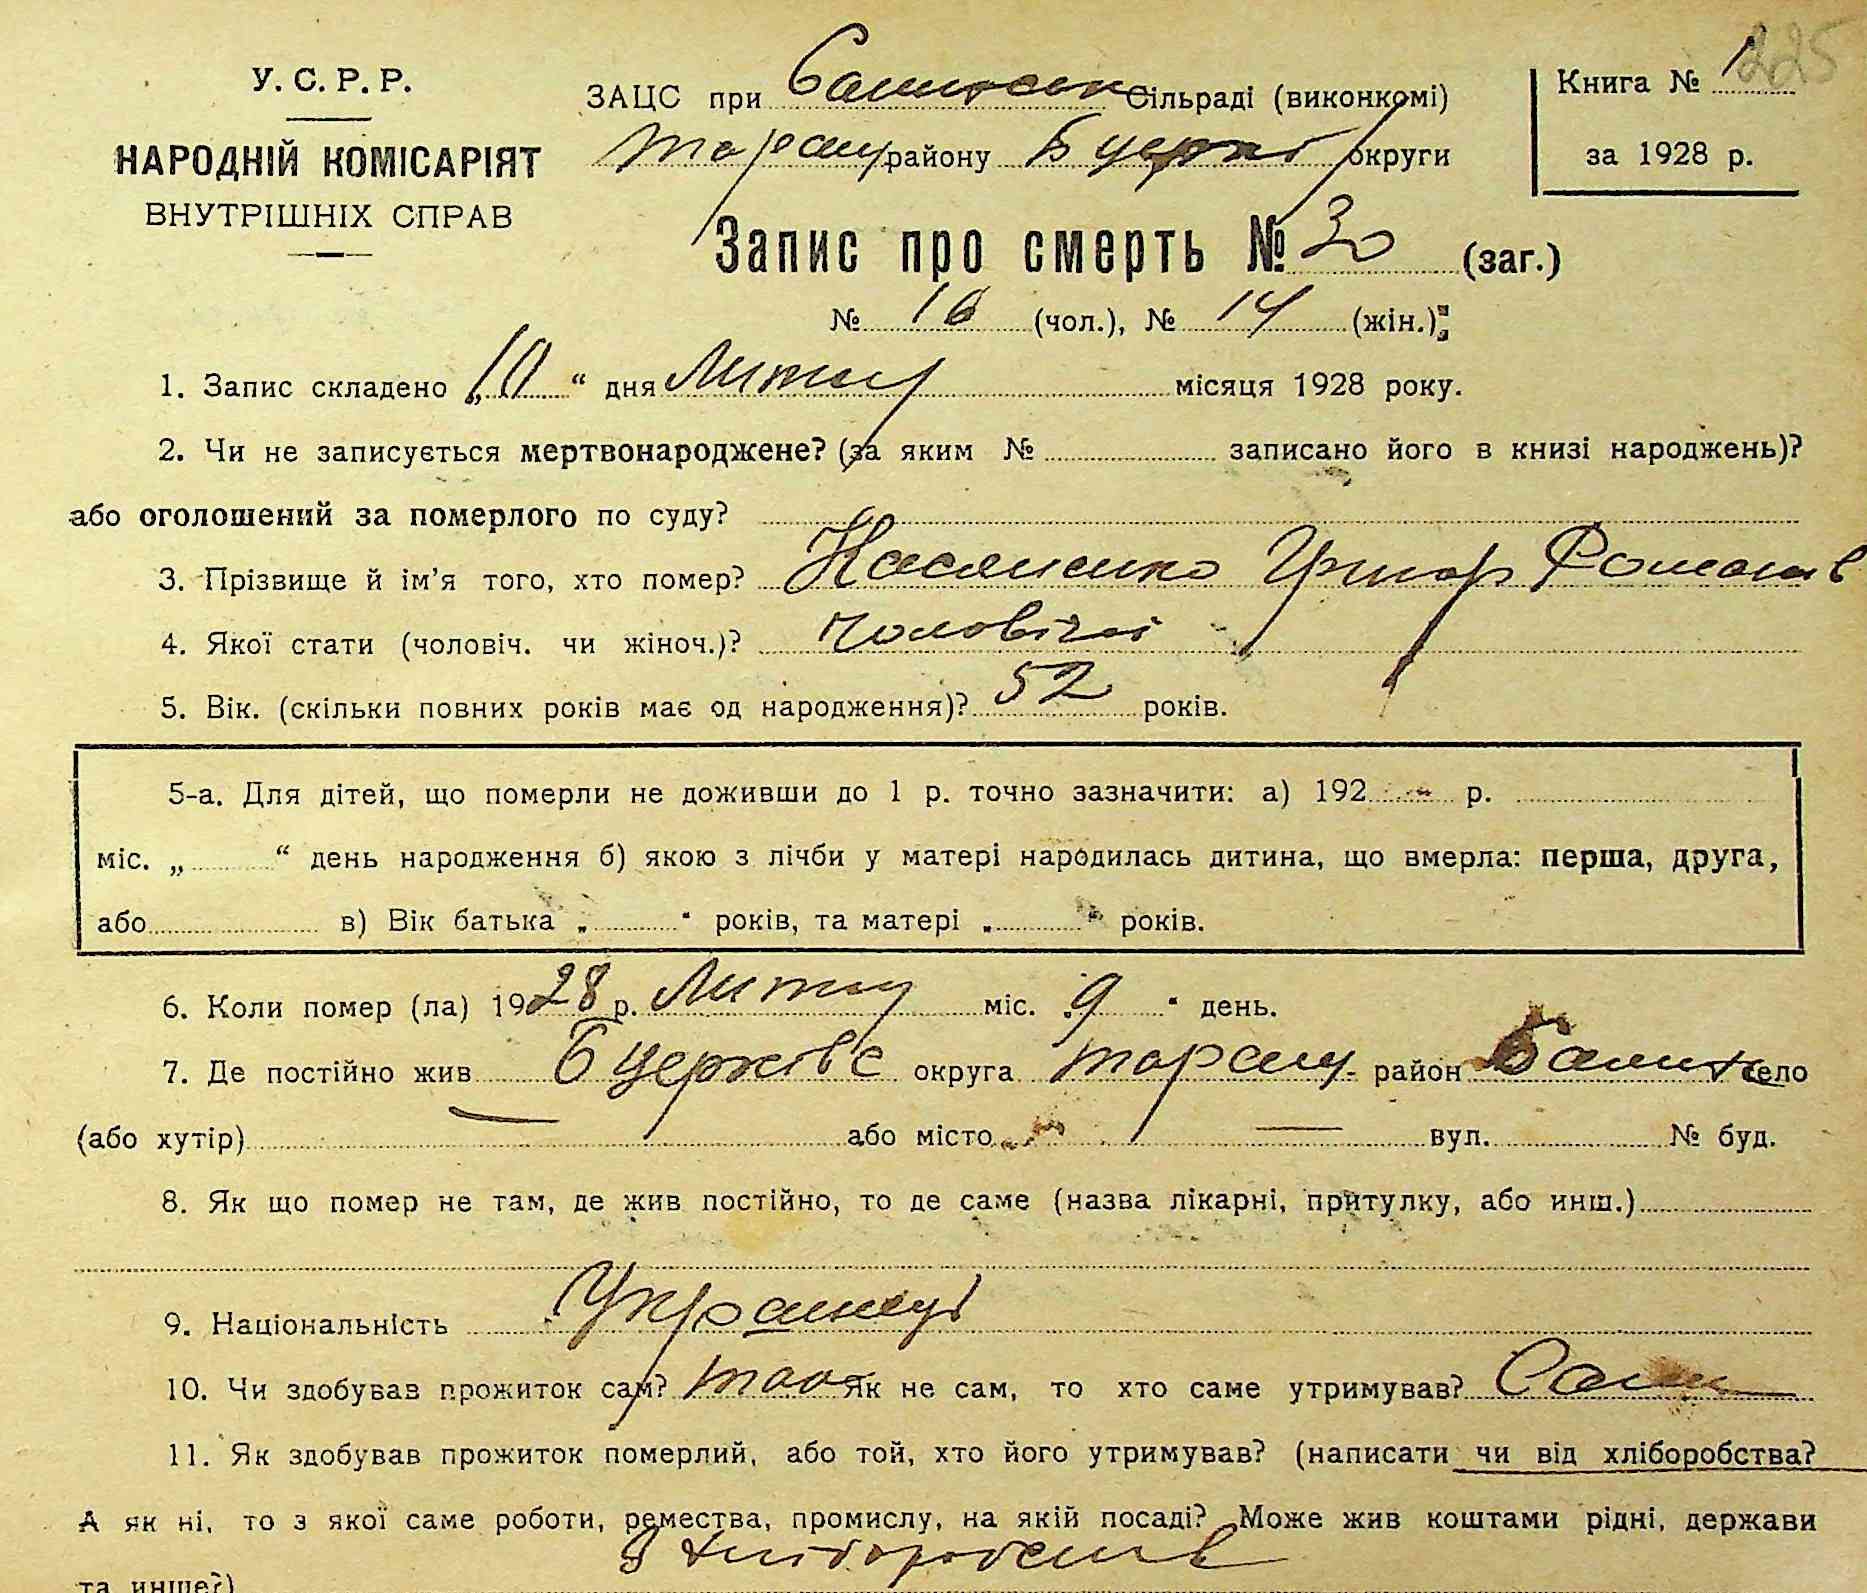 225
У. С. Р. Р.
НАРОДНІЙ КОМІСАРІЯТ
ВНУТРІШНІХ СПРАВ
ЗАЦС при Сільраді (виконкомі)
району округи
Книга № 1
за 1928 р.
Запис про смерть № 30 (заг.)
№ 16 (чол.), № 14 (жін.):
1. Запис складено „10“ дня Лютого місяця 1928 року.
2. Чи не записується мертвонароджене? (за яким № записано його в книзі народжень)?
або оголошений за померлого по суду?
3. Прізвище й ім’я того, хто помер? Касяненко Григор Романів
4. Якої стати (чоловіч. чи жіноч.)? Чоловічої
5. Вік. (скільки повних років має од народження)? 52 років.
5-а. Для дітей, що померли не доживши до 1 р. точно зазначити: а) 192 р.
міс. „ “ день народження б) якою з лічби у матері народилась дитина, що вмерла: перша, друга,
або в) Вік батька „ “ років, та матері „ “ років.
6. Коли помер (ла) 1928 р. Лютого міс. „9“ день.
7. Де постійно жив Б Церківс округа Таращ. район село
(або хутір) — або місто — вул. № буд.
8. Як що помер не там, де жив постійно, то де саме (назва лікарні, притулку, або инш.)
9. Національність Українці
10. Чи здобував прожиток сам? так Як не сам, то хто саме утримував? Сам
11. Як здобував прожиток померлий, або той, хто його утримував? (написати чи від хліборобства?
А як ні, то з якої саме роботи, ремества, промислу, на якій посаді? Може жив коштами рідні, держави
та инше?) З